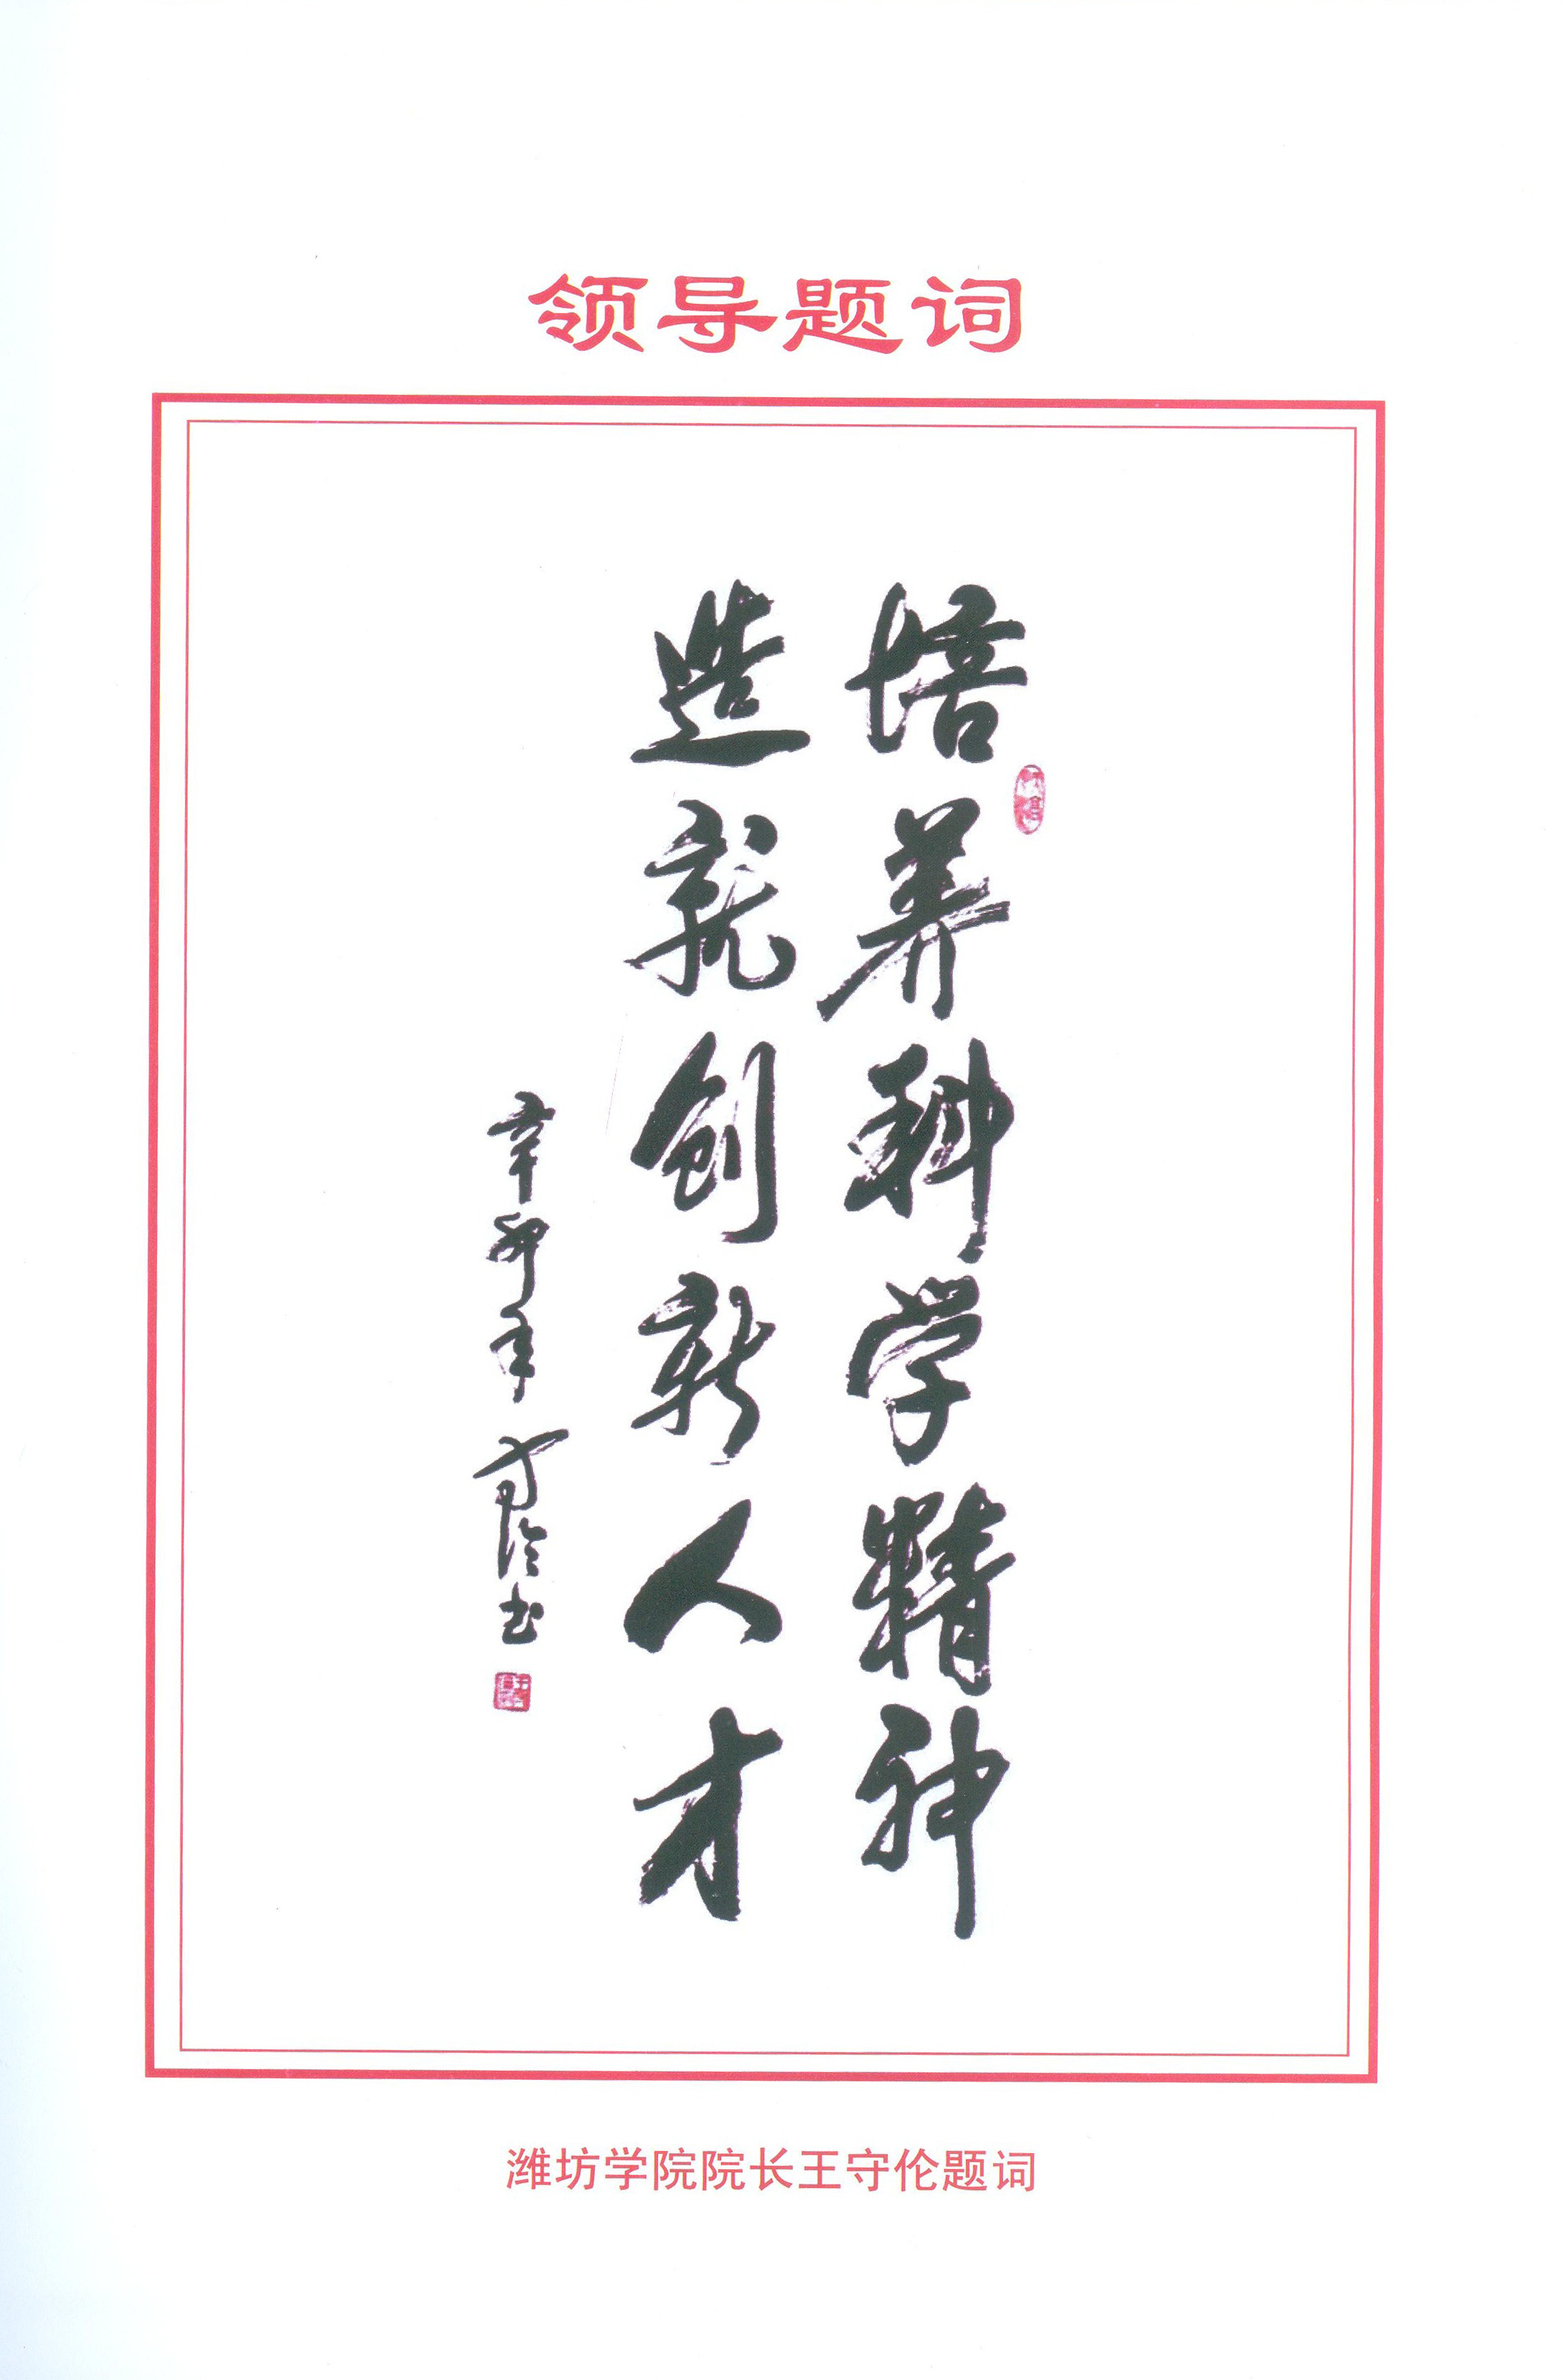 领导题词
培养科学精神
造就创新人才
辛卯年 守伦书
潍坊学院院长王守伦题词